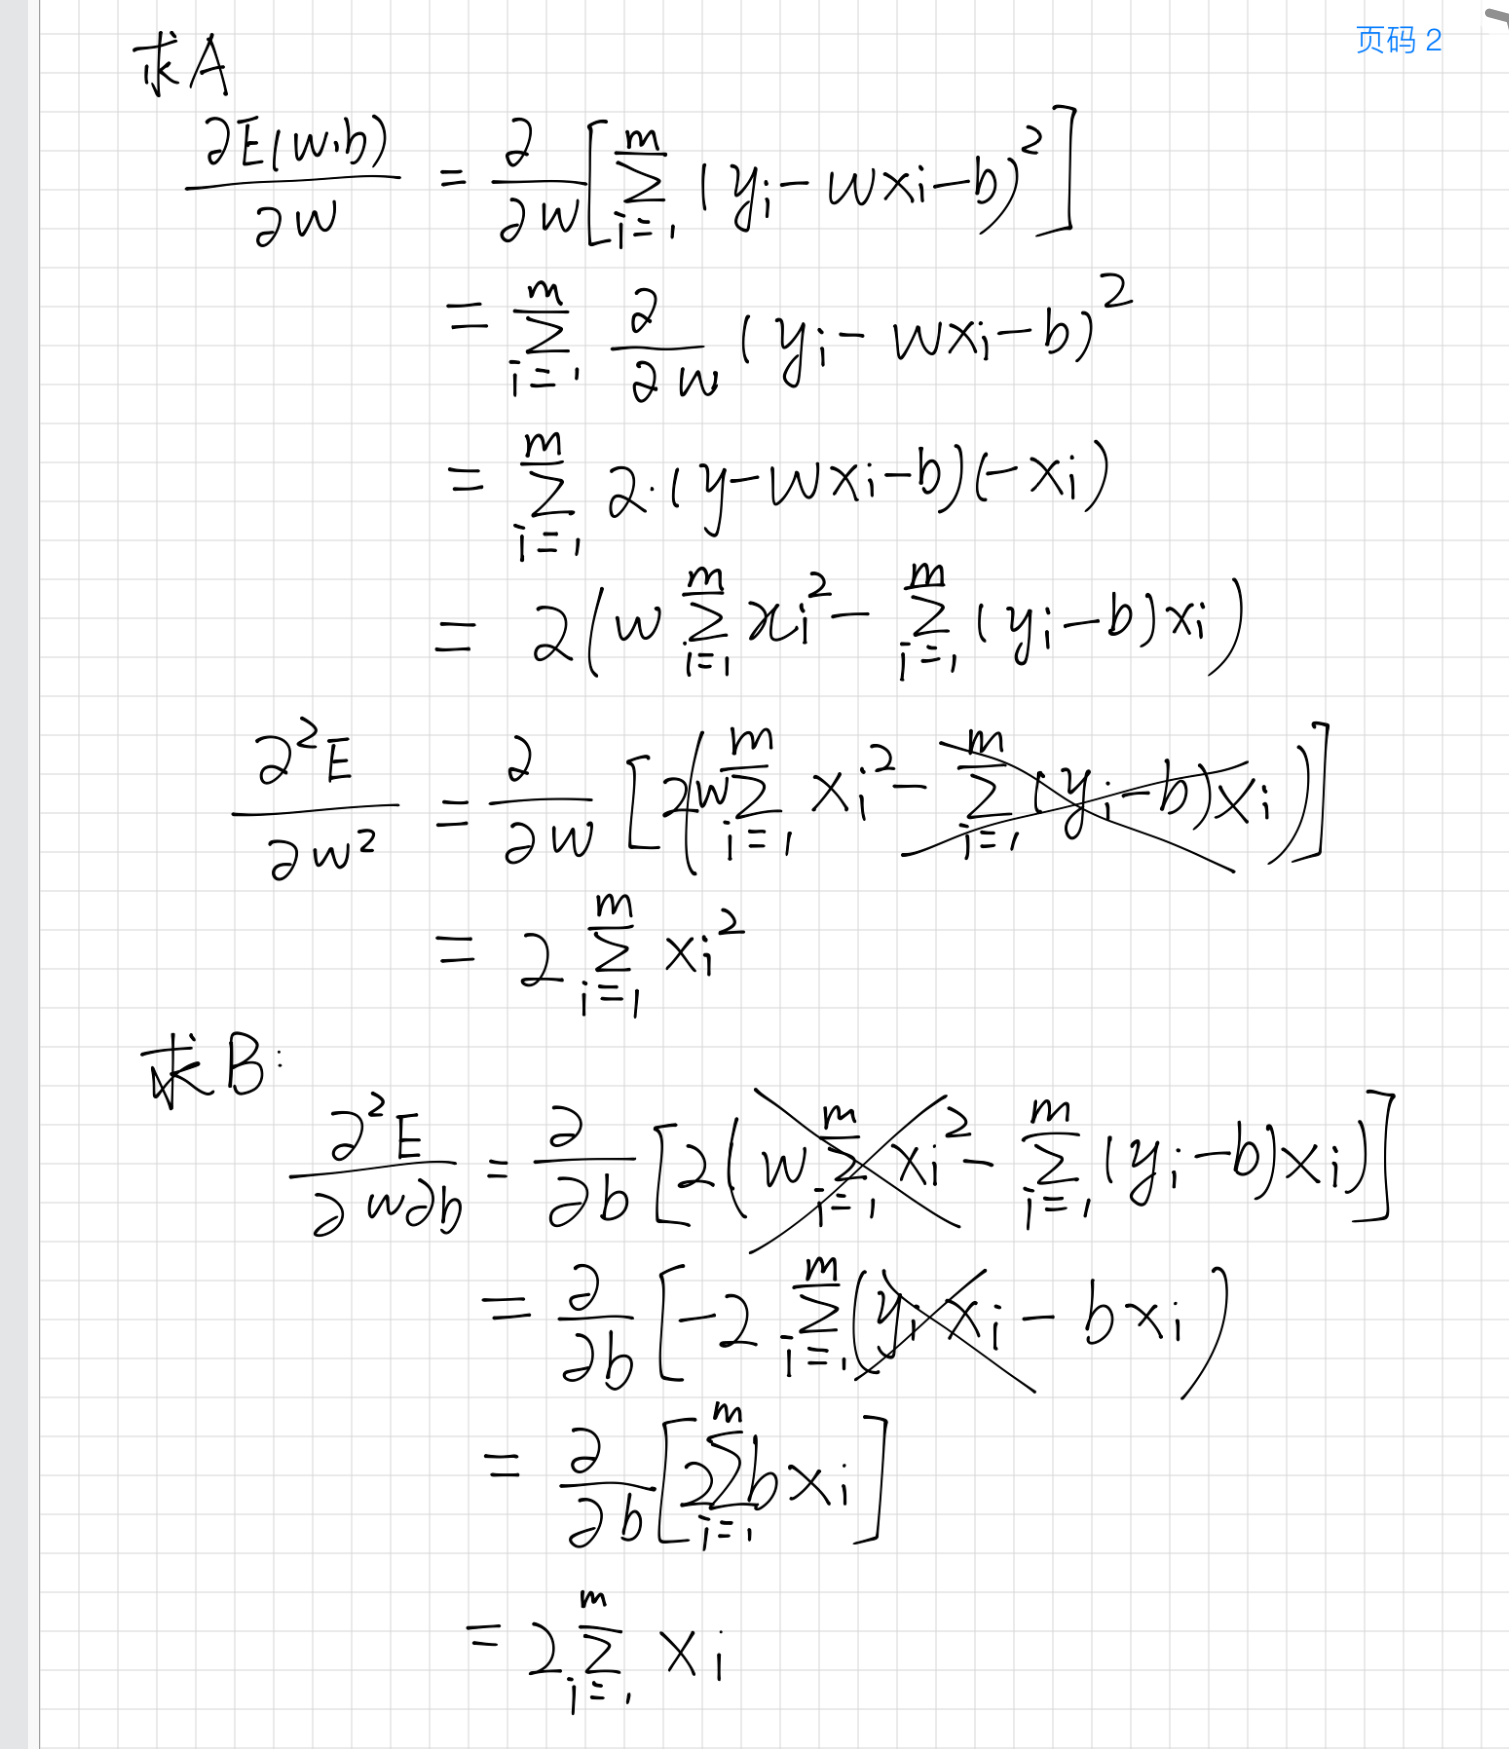 页码 2
求A
∂E(w,b)/∂w = ∂/∂w [∑_{i=1}^{m} (yi - wxi - b)^2]
= ∑_{i=1}^{m} ∂/∂w (yi - wxi - b)^2
= ∑_{i=1}^{m} 2·(y - wxi - b)(-xi)
= 2(w ∑_{i=1}^{m} xi^2 - ∑_{i=1}^{m} (yi - b)xi)
∂^2E/∂w^2 = ∂/∂w [2(w ∑_{i=1}^{m} xi^2 - ∑_{i=1}^{m} (yi - b)xi)]
= 2 ∑_{i=1}^{m} xi^2
求B:
∂^2E/∂w∂b = ∂/∂b [2(w ∑_{i=1}^{m} xi^2 - ∑_{i=1}^{m} (yi - b)xi)]
= ∂/∂b [-2 ∑_{i=1}^{m} (yi xi - bxi)
= ∂/∂b [2 ∑_{i=1}^{m} bxi]
= 2 ∑_{i=1}^{m} xi